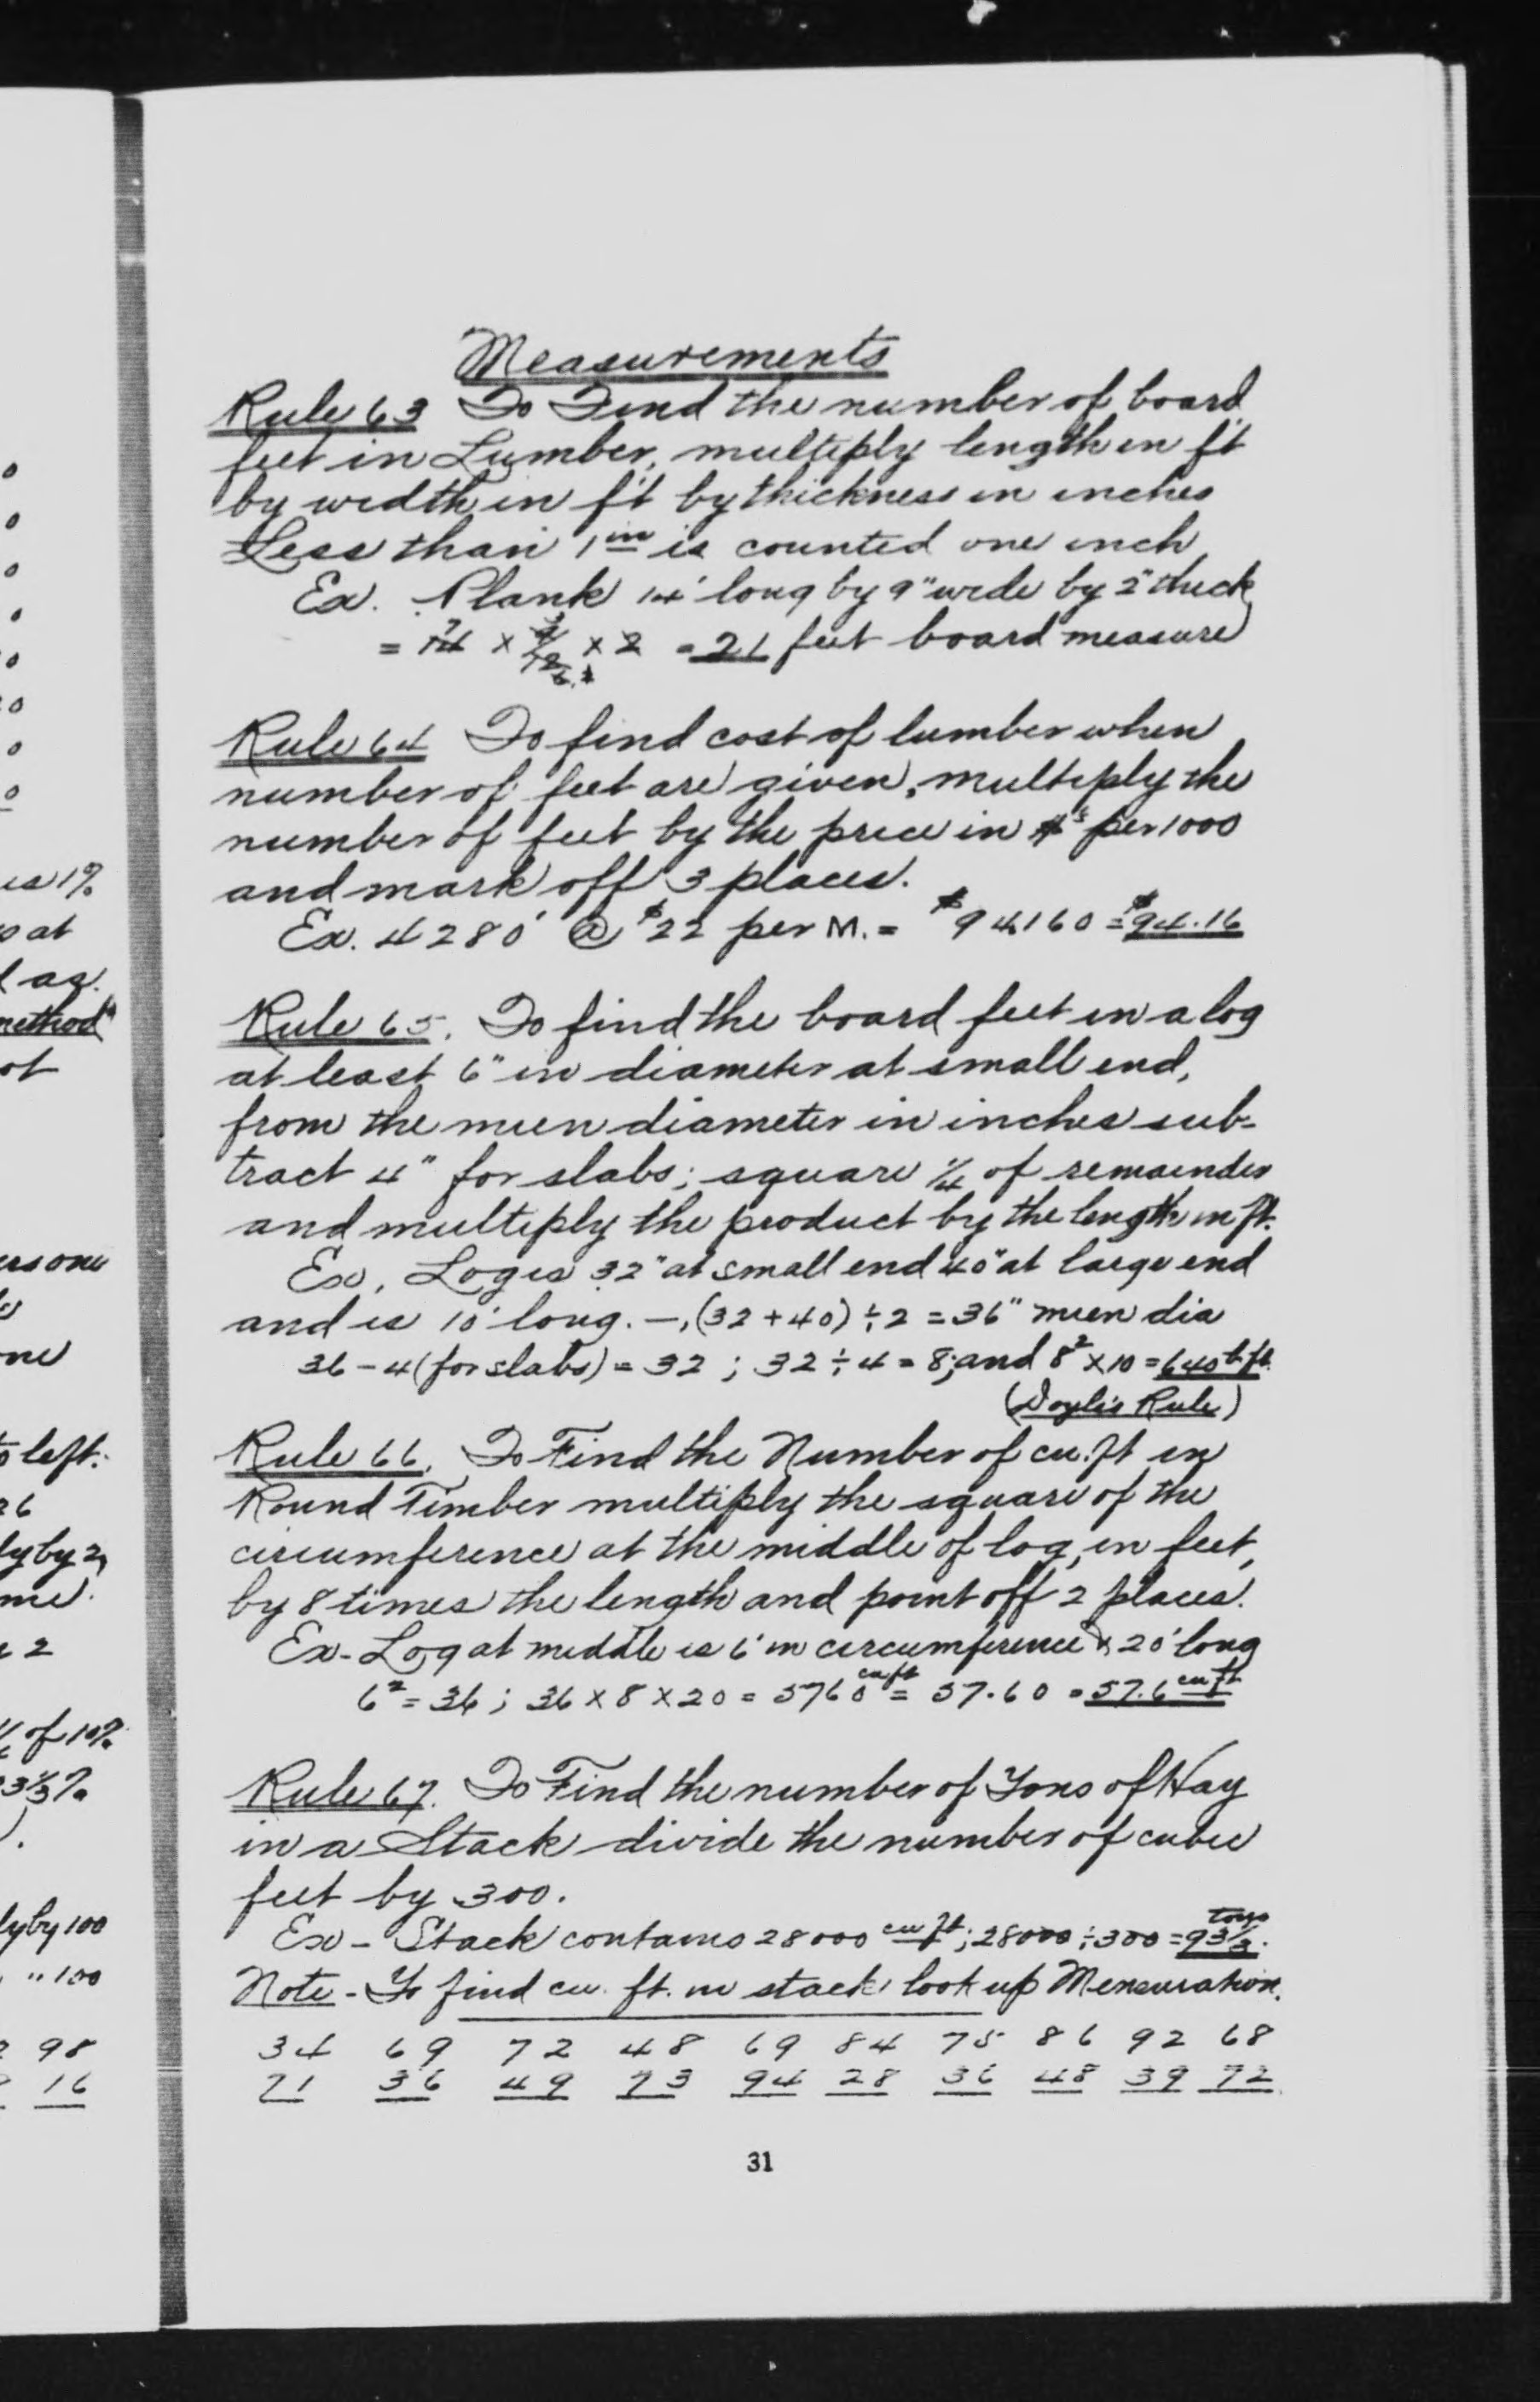 Measurements
Rule 63 To Find the number of board
feet in Lumber, multiply length in ft
by width in ft by thickness in inches
Less than 1 in is counted one inch
Ex. Plank 14' long by 9" wide by 2" thick
= 14 × 9/12 × 2 = 21 feet board measure
Rule 64 To find cost of lumber when
number of feet are given, multiply the
number of feet by the price in $'s per 1000
and mark off 3 places.
Ex. 4280' @ $22 per M. = $94.160 = $94.16
Rule 65. To find the board feet in a log
at least 6" in diameter at small end,
from the mean diameter in inches sub-
tract 4" for slabs; square 1/4 of remainder
and multiply the product by the length in ft.
Ex. Log is 32" at small end 40" at large end
and is 10' long. —, (32 + 40) ÷ 2 = 36" mean dia
36 - 4 (for slabs) = 32 ; 32 ÷ 4 = 8; and 8² × 10 = 640 b.ft.
(Doyle's Rule)
Rule 66. To Find the Number of cu. ft in
Round Timber multiply the square of the
circumference at the middle of log, in feet,
by 8 times the length and point off 2 places.
Ex - Log at middle is 6' in circumference & 20' long
6² = 36 ; 36 × 8 × 20 = 5760 cu ft = 57.60 = 57.6 cu ft
Rule 67. To Find the number of Tons of Hay
in a Stack divide the number of cubic
feet by 300.
Ex - Stack contains 28000 cu ft; 28000 ÷ 300 = 93 1/3 tons.
Note - To find cu. ft. in stack look up Mensuration.
34 69 72 48 69 84 75 86 92 68
71 36 49 73 94 28 36 48 39 72
31